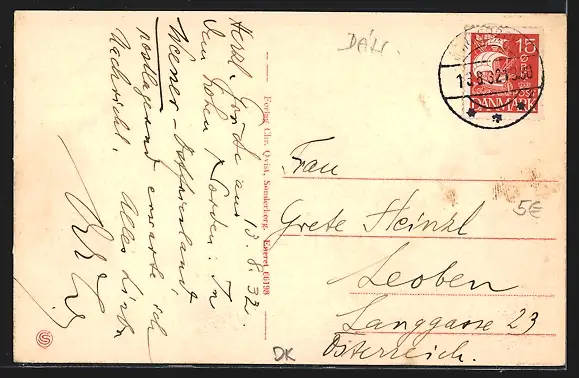 DÄN.
13.8.32
15
ØRE
POST
DANMARK
13.8.32.
Herzl. Grüße aus
dem hohen Norden. In
Weener-Ostfriesland,
postlagernd erwarte ich
Nachricht. Alles Liebe
Forlag Chr. Qvist, Sonderborg. Eneret 66198
Frau
Grete Heinzl
Leoben
Langgasse 23
Österreich.
5€
DK